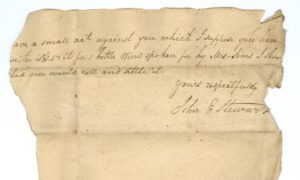 ave a small act against you which I suppose you have
for 1 bottle Wine spoken for by Mrs. Sims I
you would call and settle it.
Yours respectfully
John E Stewart